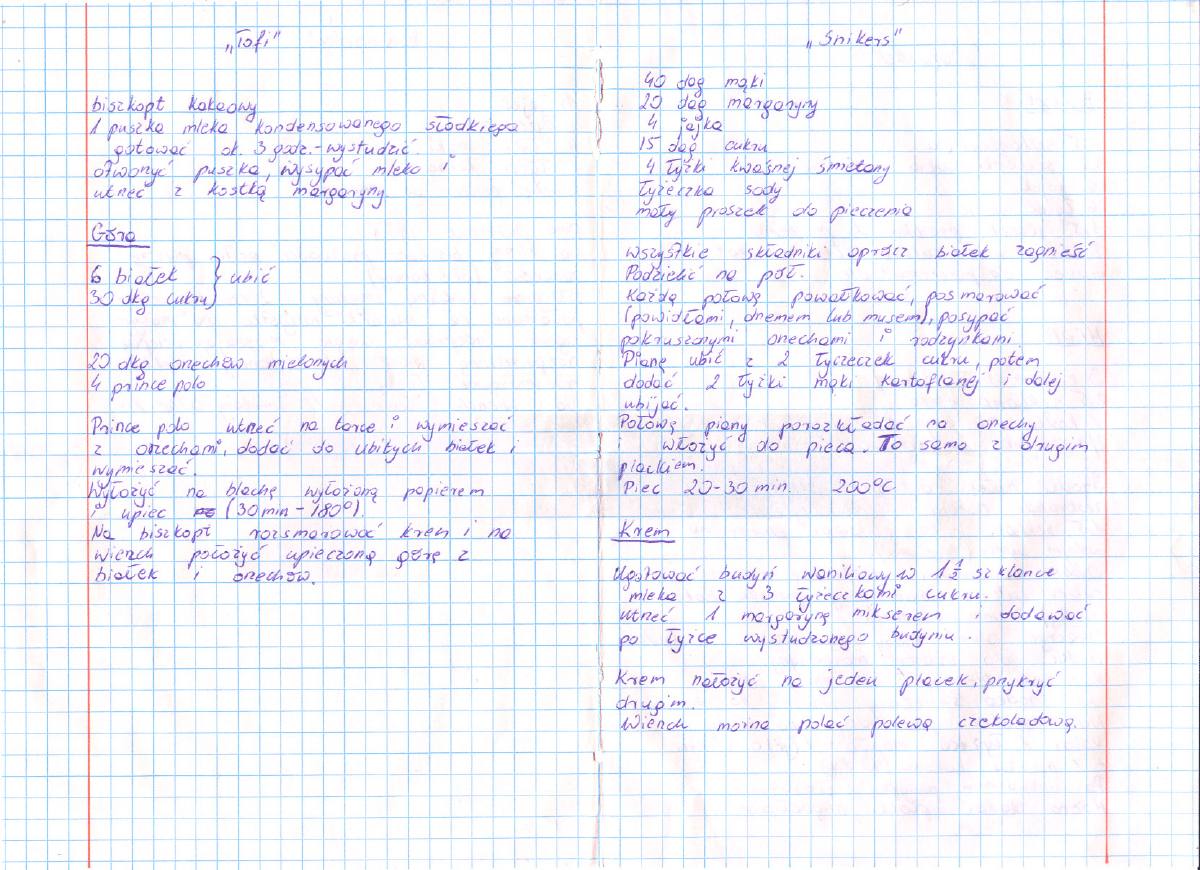 „Tofi"
biszkopt kakaowy
1 puszka mleka kondensowanego słodkiego
gotować ok. 3 godz. - wystudzić
otworzyć puszka, wysypać mleko i
utrzeć z kostką margaryny
Góra
6 białek } ubić
30 dkg cukru
20 dkg orzechów mielonych
4 prince polo
Prince polo utrzeć na tarce i wymieszać
z orzechami, dodać do ubitych białek i
wymieszać.
Wyłożyć na blachę wyłożoną papierem
i upiec (30 min - 180°).
Na biszkopt rozsmarować krem i na
wierzch położyć upieczoną górę z
białek i orzechów.
„Snikers"
40 dag mąki
20 dag margaryny
4 jajka
15 dag cukru
4 łyżki kwaśnej śmietany
łyżeczka sody
mały proszek do pieczenia
wszystkie składniki oprócz białek zagnieść
Podzielić na pół.
Każdą połowę powałkować, posmarować
(powidłami, dżemem lub musem), posypać
pokruszonymi orzechami i rodzynkami.
Pianę ubić z 2 łyżeczek cukru, potem
dodać 2 łyżki mąki kartoflanej i dalej
ubijać.
Połowę piany porozkładać na orzechy
i włożyć do pieca. To samo z drugim
plackiem.
Piec 20-30 min. 200°C
Krem
Ugotować budyń waniliowy w 1 1/2 szklance
mleka z 3 łyżeczkami cukru.
utrzeć 1 margarynę mikserem i dodawać
po łyżce wystudzonego budyniu.
Krem nałożyć na jeden placek, przykryć
drugim.
Wierzch można polać polewą czekoladową.